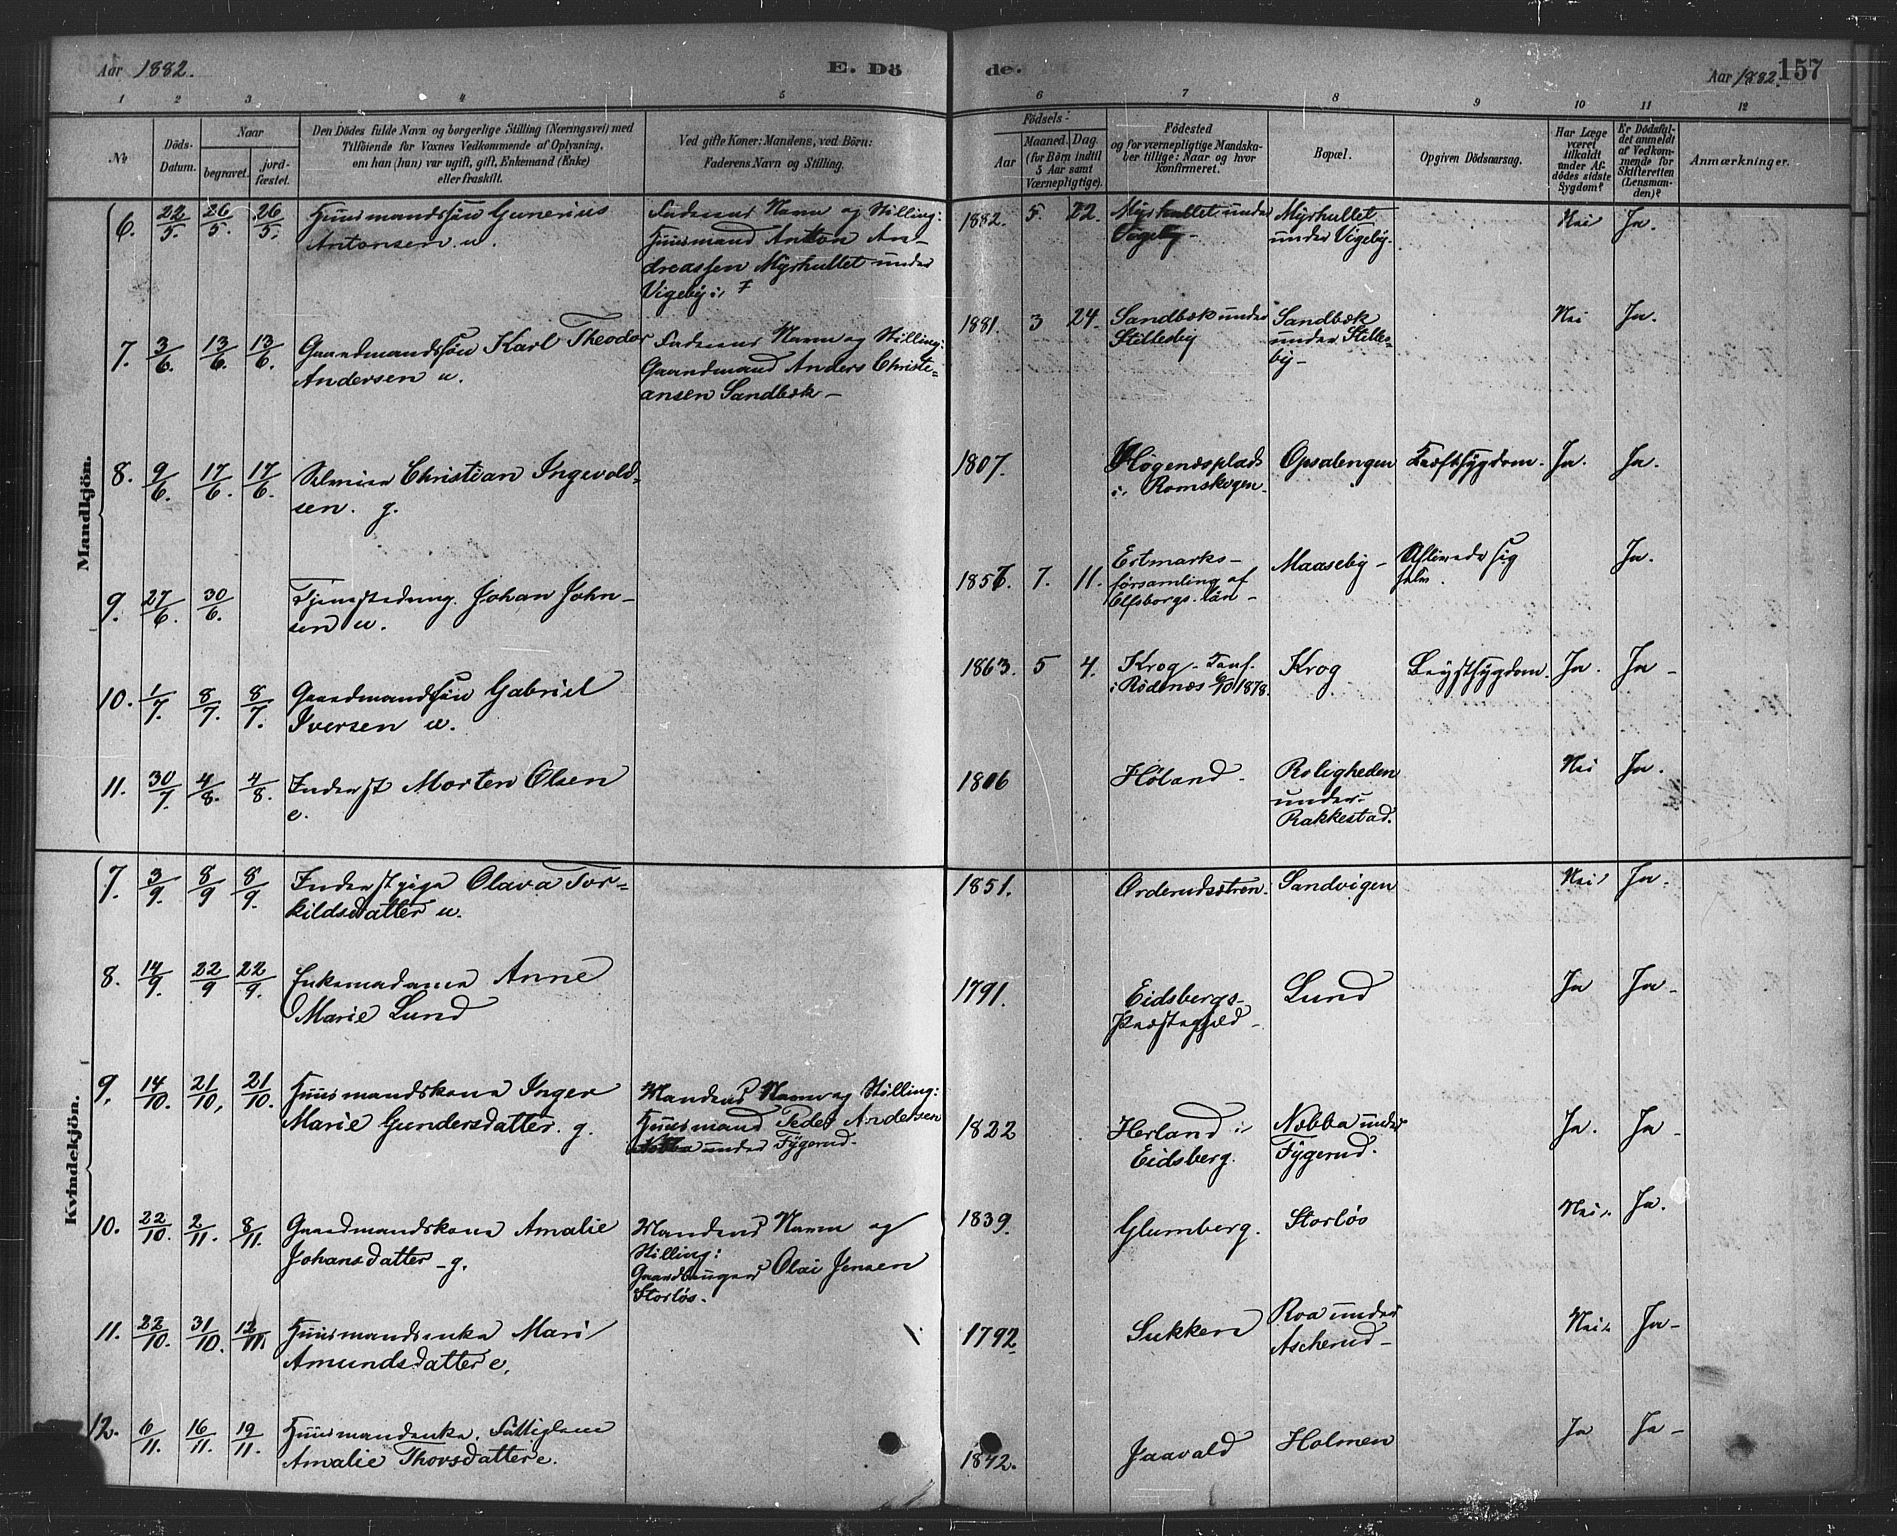 Aar 1882.
E. Dö
de.
Aar 1882.
157
1 2 3 4 5 6 7 8 9 10 11 12
No
Döds-
Datum.
Naar
begravet.
jord-
fæstet.
Den Dödes fulde Navn og borgerlige Stilling (Næringsvei) med
Tilföiende for Voxnes Vedkommende af Oplysning,
om han (hun) var ugift, gift, Enkemand (Enke)
eller fraskilt.
Ved gifte Koner: Mandens, ved Börn:
Faderens Navn og Stilling.
Födsels:
Aar
Maaned.
Dag.
(for Börn indtil
5 Aar samt
Værnepligtige).
Födested
og for værnepligtige Mandska-
ber tillige: Naar og hvor
konfirmeret.
Bopæl.
Opgiven Dödsaarsag.
Har Læge
været
tilkaldt
under Af-
dödes sidste
Sygdom?
Er Dödsfal-
det anmeldt
af Vedkom-
mende for
Skifteretten
(Lensman-
den)?
Anmærkninger.
Mandkjön.
6. 22/5. 26/5. 26/5. Huusmandssøn Gunerius
Antonsen u.
Faderens Navn og Stilling:
Huusmand Anton An-
dreassen Myrhultet under
Vigeby
1882. 5. 22. Myrhultet under
Vigeby -
Myrhultet
under Vigeby.
Nei Ja.
7. 3/6. 13/6. 13/6. Gaardmandssøn Karl Theodor
Andersen u.
Faderens Navn og Stilling:
Gaardmand Anders Christi-
ansen Sandbæk -
1881. 3 24. Sandbæk under
Stillesby
Sandbæk
under Stilles-
by -
Nei Ja.
8. 9/6. 17/6. 17/6. Christian Ingevold-
sen. g.
1807. Høgenæsplads
i Romskogen.
Opsalengen Kræftsygdom. Ja. Ja.
9. 27/6. 30/6. Tjenestedreng Johan John-
sen u.
1857. 7. 11. Ertmarks-
forsamling af
Elfsborgs län -
Maaseby - Aflivede sig
selv.
Ja.
10. 1/7. 8/7. 8/7. Gaardmandssøn Gabriel
Iversen u.
1863. 5 4. Krog - Konf.
i Rödenæs 6/10 1878.
Krog Brystsygdom. Ja. Ja -
11. 30/7. 4/8. 4/8. Inderst Morten Olsen
e.
1806 Höland. Roligheden
under
Rakkestad.
Nei Ja.
Kvindekjön.
7. 3/9. 8/9 8/9. Inderstpige Olava Tor-
kildsdatter u.
1851. Orderudsætren. Sandvigen Nei. Ja.
8. 14/9. 22/9 22/9. Enkemadame Anne
Marie Lund
1791. Eidsbergs-
Præstegjeld -
Lund Ja Ja -
9. 14/10. 21/10. 21/10. Huusmandskone Inger
Marie Gundersdatter. g.
Mandens Navn og Stilling:
Huusmand Peder Andersen
Nebba under Fygerud.
1822 Herland i
Eidsberg.
Nebba under
Fygerud.
Ja. Ja -
10. 22/10. 2/11. 8/11. Gaardmandskone Amalie
Johansdatter - g.
Mandens Navn og
Stilling:
Gaardbruger Olai Jensen
Storløs.
1839. Glumberg. Storløs Nei. Ja.
11. 22/10. 31/10. 12/11. Huusmandsenke Mari
Amundsdatter e.
1792 Sukken Roa under
Ascherud -
Nei. Ja -
12. 6/11. 16/11. 19/11. Huusmandsenke, Fattiglem
Amalie Thorsdatter e.
1842. Jaavald Holmen Ja Ja -